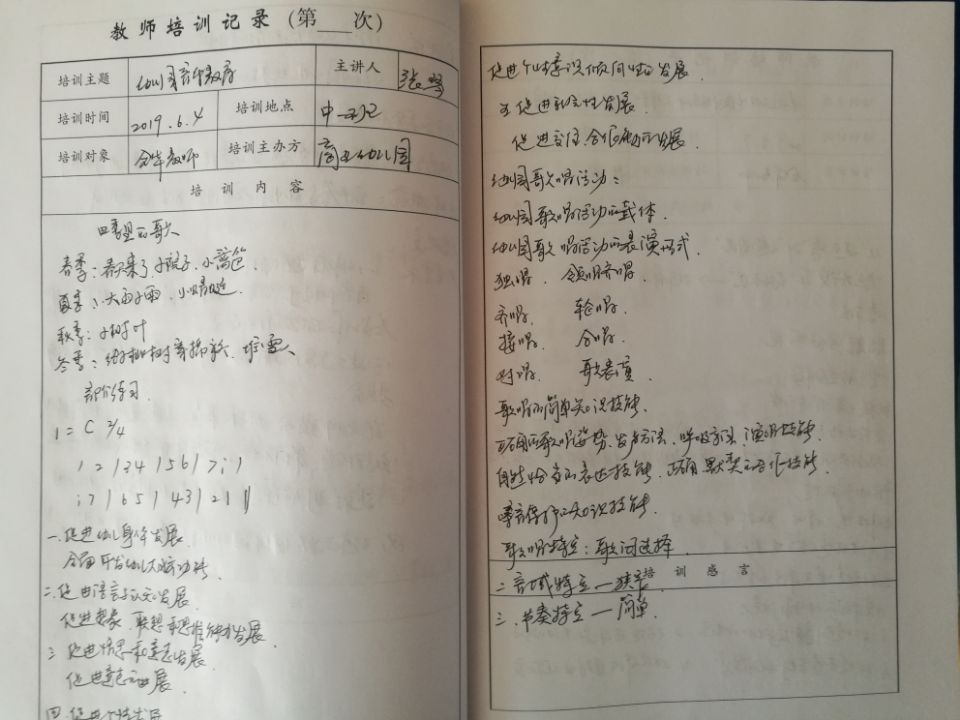 教师培训记录（第___次）
培训主题 幼儿园音乐教育 主讲人 张
培训时间 2019.6.4 培训地点 中一班
培训对象 全体教师 培训主办方 幼儿园
培训内容
四季里的歌
春季：春天来了 小院子、小篱笆
夏季：大雨小雨、小蜻蜓
秋季：小树叶
冬季：堆雪人
音阶练习
1=C 2/4
1 2 | 3 4 | 5 6 | 7 i |
i 7 | 6 5 | 4 3 | 2 1 ‖
一.促进幼儿身体发展
全面开发幼儿大脑功能
二.促进语言与认知发展
促进想象、联想、思维能力发展
三.促进情感和意志发展
促进意志发展
四.促进个性发展
促进个性意识倾向性的发展
五.促进社会性发展
促进交往、合作能力的发展
幼儿园歌唱活动：
幼儿园歌唱活动的载体
幼儿园歌唱活动的表演形式
独唱、 领唱齐唱
齐唱、 轮唱、
接唱、 合唱、
对唱、 歌表演
歌唱的简单知识技能
正确的歌唱姿势、发声方法、呼吸方法、演唱技能、
自然恰当的表达技能、正确默契的合作技能
嗓音保护的知识技能
歌唱特点：歌词选择
培训感言
二.音域特点—狭窄
三.节奏特点—简单